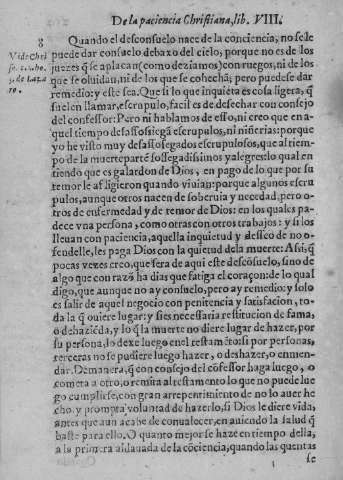 De la paciencia Christiana, lib. VIII.
8
Vide Chri
so.
Quando el desconsuelo nace de la conciencia, no se le
puede dar consuelo debaxo del cielo, porque no es de los
juezes q̃ se aplacan (como deziamos) con ruegos, ni de los
que se oluidan, ni de los que se cohechã; pero puede se dar
remedio: y este sea. Que si lo que inquieta es cosa ligera, q̃
suelen llamar, escrupulo, facil es de desechar con consejo
del confessor: Pero ni hablamos de esso, ni creo que en a-
quel tiempo desassosiegã escrupulos, ni niñerias: porque
yo he visto muy desassosegados escrupulosos, que al tiem-
po de la muerte parte sossegadissimos y alegres: lo qual en
tiendo que es galardon de Dios, en pago de lo que por su
temor le afligieron quando viuian: porque algunos escru
pulos, aunque otros nacen de soberuia y necedad, pero o-
tros de enfermedad y de temor de Dios: en los quales pa-
dece vna persona, como otras con otros trabajos: y si los
lleuan con paciencia, aquella inquietud y desseo de no o-
fendelle, les paga Dios con la quietud de la muerte: Assi, q̃
pocas vezes creo, que sera de aqui este descõsuelo, sino de
algo que con razõ ha dias que fatiga el coraçon: de lo qual
digo, que aunque no ay consuelo, pero ay remedio: y solo
es salir de aquel negocio con penitencia y satisfacion, to-
da la q̃ ouiere lugar: y si es necessaria restitucion de fama,
o de haziẽda, y lo q̃ la muerte no diere lugar de hazer, por
su persona, lo dexe luego en el testamẽto: si por personas,
terceras no se pudiere luego hazer, o deshazer, o enmen-
dar. De manera, q̃ con consejo del cõfessor haga luego, o
cometa a otro, o remita al testamento lo que no puede lue
go cumplirse, con gran arrepentimiento de no lo auer he
cho. y prompta voluntad de hazerlo, si Dios le diere vida,
antes que aun acabe de conualecer, en auiendo la salud q̃
baste para ello. O quanto mejor se haze en tiempo della,
a la primera aldauada de la cõciencia, quando las quentas
se